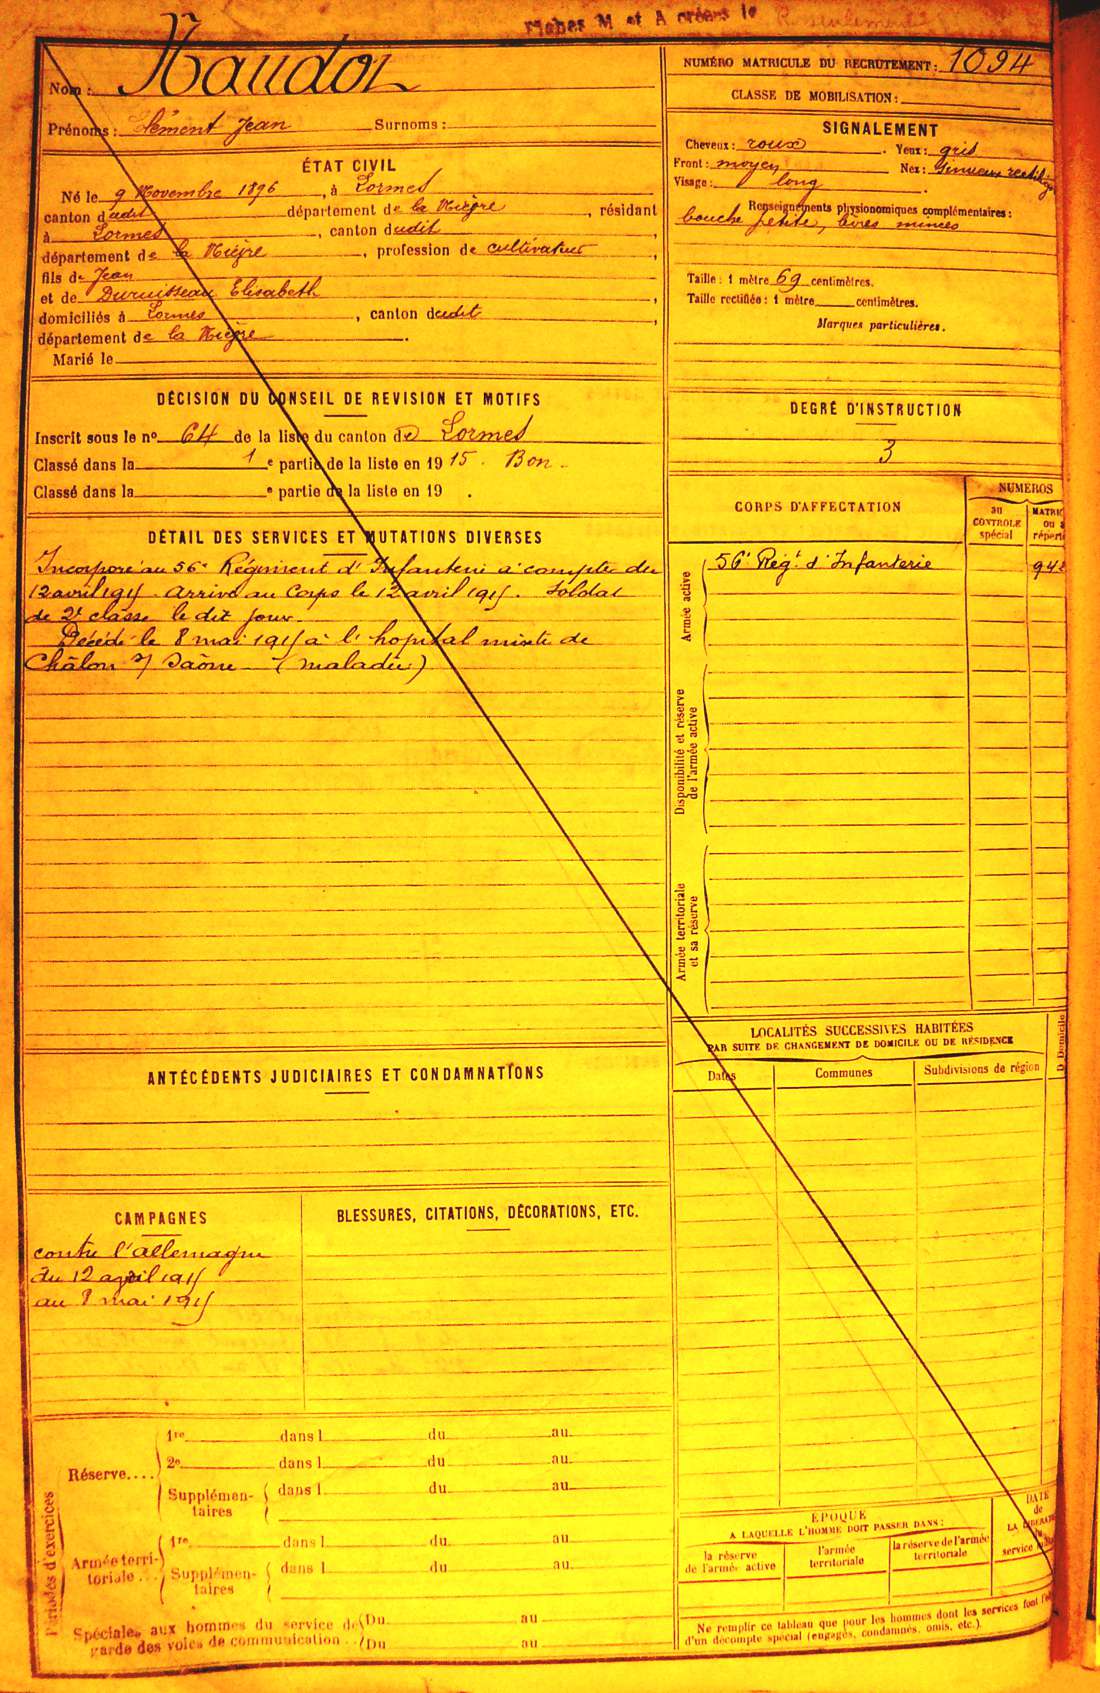 Fiches M et A créées le R seulement
Nom : Naudot
Prénoms : Clément Jean Surnoms :
ÉTAT CIVIL
Né le 9 Novembre 1896, à Lormes
canton dudit département de la Nièvre, résidant
à Lormes, canton dudit
département de la Nièvre, profession de cultivateur,
fils de Jean
et de Duruisseau Elisabeth,
domiciliés à Lormes, canton dudit,
département de la Nièvre.
Marié le
DÉCISION DU CONSEIL DE REVISION ET MOTIFS
Inscrit sous le nº 64 de la liste du canton de Lormes
Classé dans la 1e partie de la liste en 1915. Bon.
Classé dans la e partie de la liste en 19 .
DÉTAIL DES SERVICES ET MUTATIONS DIVERSES
Incorporé au 56e Régiment d'Infanterie à compter du
12 avril 1915. Arrivé au Corps le 12 avril 1915. Soldat
de 2e classe le dit jour.
Décédé le 8 mai 1915 à l'hopital mixte de
Châlon s/ Saône (maladie)
ANTÉCÉDENTS JUDICIAIRES ET CONDAMNATIONS
CAMPAGNES
contre l'allemagne
du 12 avril 1915
au 8 mai 1915
BLESSURES, CITATIONS, DÉCORATIONS, ETC.
Périodes d'exercices
Réserve....
1re dans l du au
2e dans l du au
Supplémen-
taires
dans l du au
Armée terri-
toriale ...
1re dans l du au
Supplémen-
taires
dans l du au
Spéciales aux hommes du service de
garde des voies de communication ..
(Du au
(Du au
NUMÉRO MATRICULE DU RECRUTEMENT : 1094
CLASSE DE MOBILISATION :
SIGNALEMENT
Cheveux : roux. Yeux : gris
Front : moyen Nez :
Visage : long.
Renseignements physionomiques complémentaires :
bouche petite, lèvres minces
Taille : 1 mètre 69 centimètres.
Taille rectifiée : 1 mètre centimètres.
Marques particulières.
DEGRÉ D'INSTRUCTION
3
CORPS D'AFFECTATION
NUMEROS
au
CONTROLE
spécial
MATRIC
ou a
réperto
Armée active
56e Régt d'Infanterie
Disponibilité et réserve
de l'armée active
Armée territoriale
et sa réserve
LOCALITÉS SUCCESSIVES HABITÉES
PAR SUITE DE CHANGEMENT DE DOMICILE OU DE RÉSIDENCE
Dates Communes Subdivisions de région
D Domicile
ÉPOQUE
A LAQUELLE L'HOMME DOIT PASSER DANS :
la réserve
de l'armée active
l'armée
territoriale
la réserve de l'armée
territoriale
DATE
de
LA LIBÉRATI
du
service
Ne remplir ce tableau que pour les hommes dont les services font l'o
d'un décompte spécial (engagés, condamnés, omis, etc.)